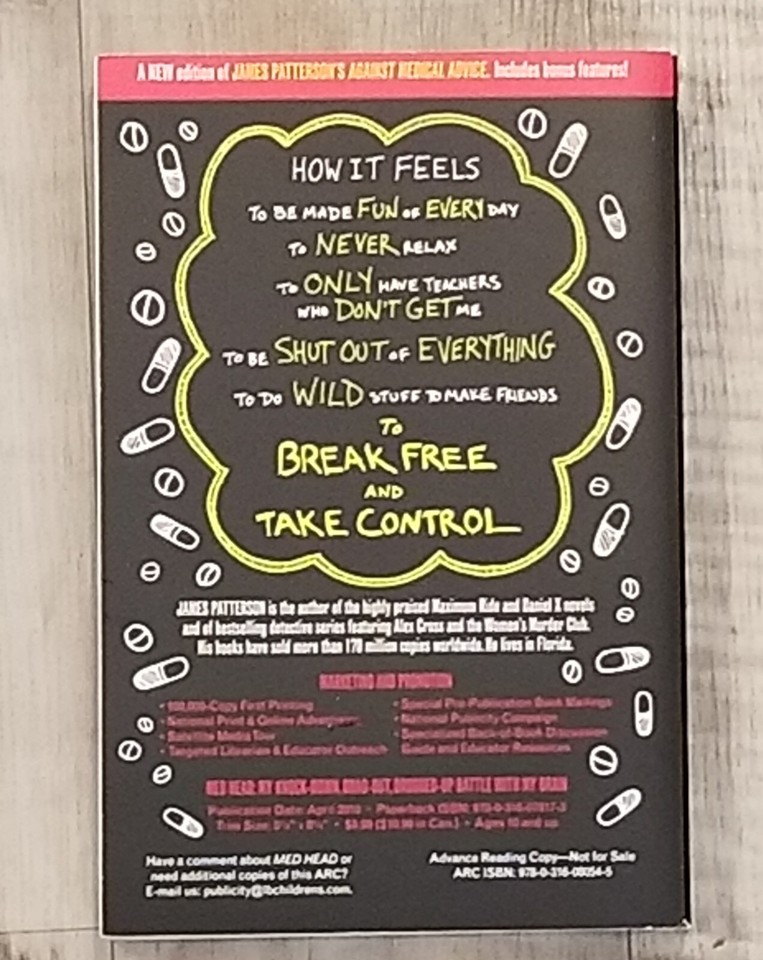 A NEW edition of JAMES PATTERSON'S AGAINST MEDICAL ADVICE. Includes bonus features!
HOW IT FEELS
TO BE MADE FUN OF EVERY DAY
TO NEVER RELAX
TO ONLY HAVE TEACHERS
WHO DON'T GET ME
TO BE SHUT OUT OF EVERYTHING
TO DO WILD STUFF TO MAKE FRIENDS
TO
BREAK FREE
AND
TAKE CONTROL
JAMES PATTERSON is the author of the highly praised Maximum Ride and Daniel X novels
and of bestselling detective series featuring Alex Cross and the Women's Murder Club.
His books have sold more than 170 million copies worldwide. He lives in Florida.
MARKETING AND PROMOTION
• 100,000-Copy First Printing
• National Print & Online Advertising
• Satellite Media Tour
• Targeted Librarian & Educator Outreach
• Special Pre-Publication Book Mailings
• National Publicity Campaign
• Specialized Back-of-Book Discussion
Guide and Educator Resources
MED HEAD: MY KNOCK-DOWN, DRAG-OUT, DRUGGED-UP BATTLE WITH MY BRAIN
Publication Date: April 2010 • Paperback ISBN: 978-0-316-07617-3
Trim Size: • Ages 10 and up
Have a comment about MED HEAD or
need additional copies of this ARC?
E-mail us: publicity@lbchildrens.com.
Advance Reading Copy—Not for Sale
ARC ISBN: 978-0-316-08054-5